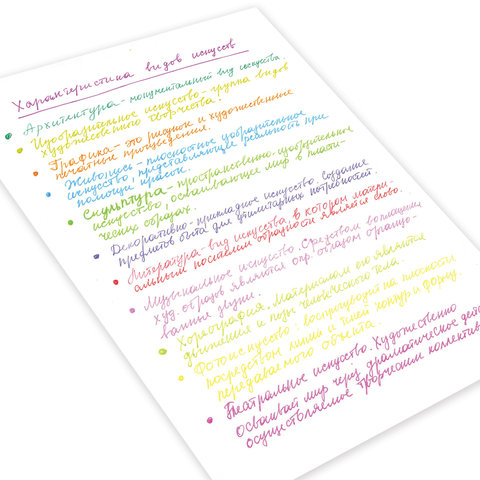 Характеристика видов искусств
Архитектура - монументальный вид искусства.
Изобразительное искусство - группа видов
художественного творчества.
Графика - это рисунок и художественные
печатные произведения.
Живопись - плоскостное изобразительное
искусство, представляющее реальность при
помощи красок.
Скульптура - пространственно-изобразительное
искусство, осваивающее мир в пласти-
ческих образах.
Декоративно-прикладное искусство. Создание
предметов быта для утилитарных потребностей.
Литература - вид искусства, в котором матери-
альным носителем образности является слово.
Музыкальное искусство. Средством воплощения
худ. образов являются опр. образом органзо-
ванные звуки.
Хореография. Материалом ею являются
движения и позы человеческого тела.
Фотоискусство: воспризводит на плоскости
посредством линий и теней контур и форму
передаваемого объекта.
Театральное искусство. Художественно
осваивает мир через драматическое дей
осуществляемое творческим коллектив